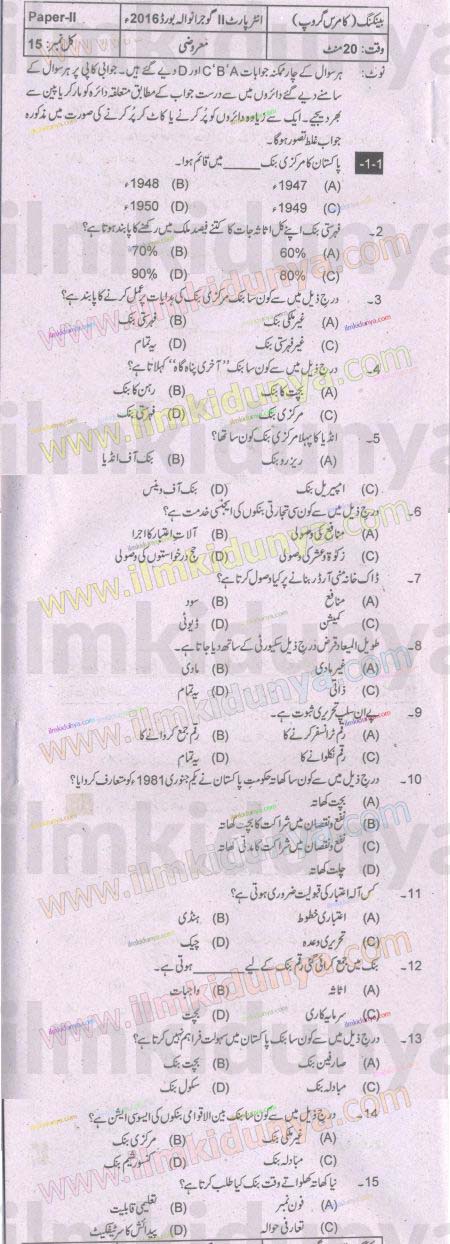 بینکنگ (کامرس گروپ) انٹر پارٹ II گوجرانوالہ بورڈ 2016ء Paper-II
وقت: 20 منٹ معروضی کل نمبر: 15
نوٹ: ہر سوال کے چار ممکنہ جوابات A‘B‘C اور D دیے گئے ہیں۔ جوابی کاپی پر ہر سوال کے
سامنے دیے گئے دائروں میں سے درست جواب کے مطابق متعلقہ دائرہ کو مارکر یا پین سے
بھر دیجیے۔ ایک سے زیادہ دائروں کو پُر کرنے یا کاٹ کر پُر کرنے کی صورت میں مذکورہ
جواب غلط تصور ہوگا۔
1-1- پاکستان کا مرکزی بنک _____ میں قائم ہوا۔
(A) 1947ء (B) 1948ء
(C) 1949ء (D) 1950ء
2۔ فہرستی بنک اپنے کل اثاثہ جات کا کتنے فیصد ملک میں رکھنے کا پابند ہوتا ہے؟
(A) 60% (B) 70%
(C) 80% (D) 90%
3۔ درج ذیل میں سے کون سا بنک مرکزی بنک کی ہدایات پر عمل کرنے کا پابند ہے؟
(A) غیر ملکی بنک (B) فہرستی بنک
(C) غیر فہرستی بنک (D) یہ تمام
4۔ درج ذیل میں سے کون سا بنک ”آخری پناہ گاہ“ کہلاتا ہے؟
(A) بچت کا بنک (B) رہن کا بنک
(C) مرکزی بنک (D) فہرستی بنک
5۔ انڈیا کا پہلا مرکزی بنک کون سا تھا؟
(A) ریزرو بنک (B) بنک آف انڈیا
(C) امپیریل بنک (D) بنک آف وینس
6۔ درج ذیل میں سے کون سی تجارتی بنکوں کی ایجنسی خدمت ہے؟
(A) منافع کی وصولی (B) آلات اعتبار کا اجرا
(C) زکوٰۃ و عشر کی وصولی (D) حج درخواستوں کی وصولی
7۔ ڈاک خانہ منی آرڈر بنانے پر کیا وصول کرتا ہے؟
(A) منافع (B) سود
(C) کمیشن (D) ڈیوٹی
8۔ طویل المیعاد قرض درج ذیل سکیورٹی کے ساتھ دیا جاتا ہے۔
(A) غیر مادی (B) مادی
(C) ذاتی (D) یہ تمام
9۔ پے ان سلپ تحریری ثبوت ہے۔
(A) رقم ٹرانسفر کرنے کا (B) رقم جمع کروانے کا
(C) رقم نکلوانے کا (D) یہ تمام
10۔ درج ذیل میں سے کون سا کھاتہ حکومت پاکستان نے یکم جنوری 1981ء کو متعارف کروایا؟
(A) بچت کھاتہ
(B) نفع و نقصان میں شراکت کا بچت کھاتہ
(C) نفع و نقصان میں شراکت کا مدتی کھاتہ
(D) چلت کھاتہ
11۔ کس آلہ اعتبار کی قبولیت ضروری ہوتی ہے؟
(A) اعتباری خطوط (B) ہنڈی
(C) تحریری وعدہ (D) چیک
12۔ بنک میں جمع کرائی گئی رقم بنک کے لیے _____ ہوتی ہے۔
(A) اثاثہ (B) واجبات
(C) سرمایہ کاری (D) بچت
13۔ درج ذیل میں سے کون سا بنک پاکستان میں سہولت فراہم نہیں کرتا ہے؟
(A) صارفین بنک (B) بچت بنک
(C) مبادلہ بنک (D) سکول بنک
14۔ درج ذیل میں سے کون سا بنک بین الاقوامی بنکوں کی ایسوسی ایشن ہے؟
(A) غیر ملکی بنک (B) مرکزی بنک
(C) مبادلہ بنک (D) کنسورشیم بنک
15۔ نیا کھاتہ کھلواتے وقت بنک کیا طلب کرتا ہے؟
(A) فون نمبر (B) تعلیمی قابلیت
(C) تعارفی حوالہ (D) پیدائش کا سرٹیفکیٹ
www.ilmkidunya.com
ilmkidunya.com